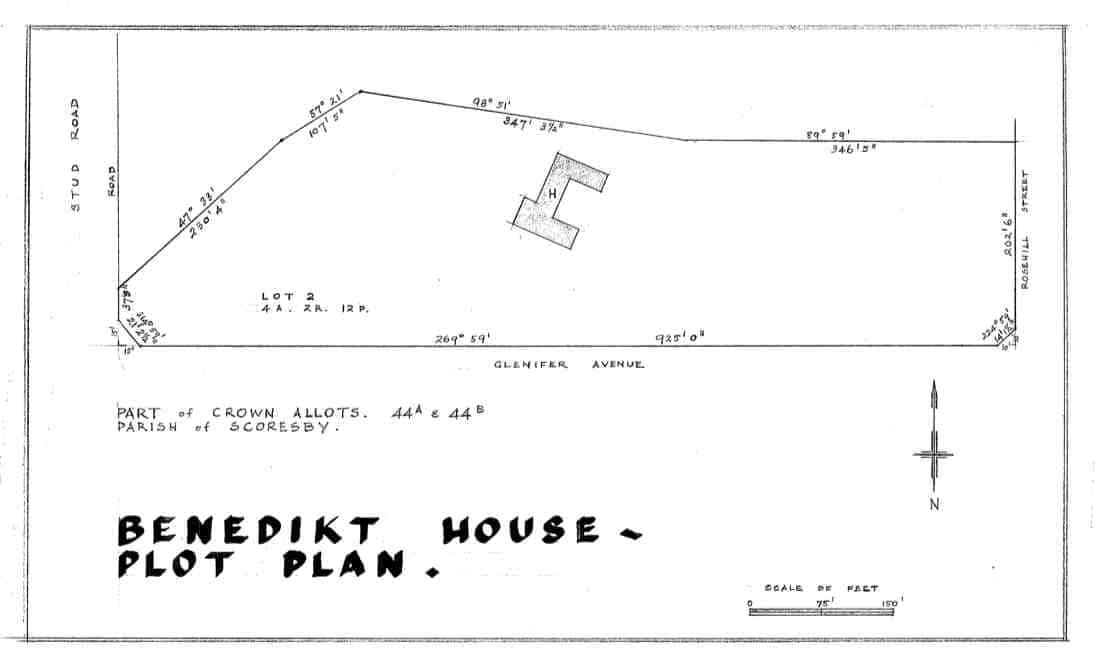 STUD ROAD
ROAD
57° 21'
107' 5"
98° 51'
347' 3½"
89° 59'
346' 5"
47° 33'
230' 4"
H
202' 6"
ROSEHILL STREET
LOT 2
4 A. 2 R. 12 P.
15'
15'
224° 59'
269° 59'
925' 0"
GLENIFER AVENUE
PART of CROWN ALLOTS. 44A & 44B
PARISH of SCORESBY.
N
BENEDIKT HOUSE -
PLOT PLAN.
SCALE OF FEET
0 75' 150'